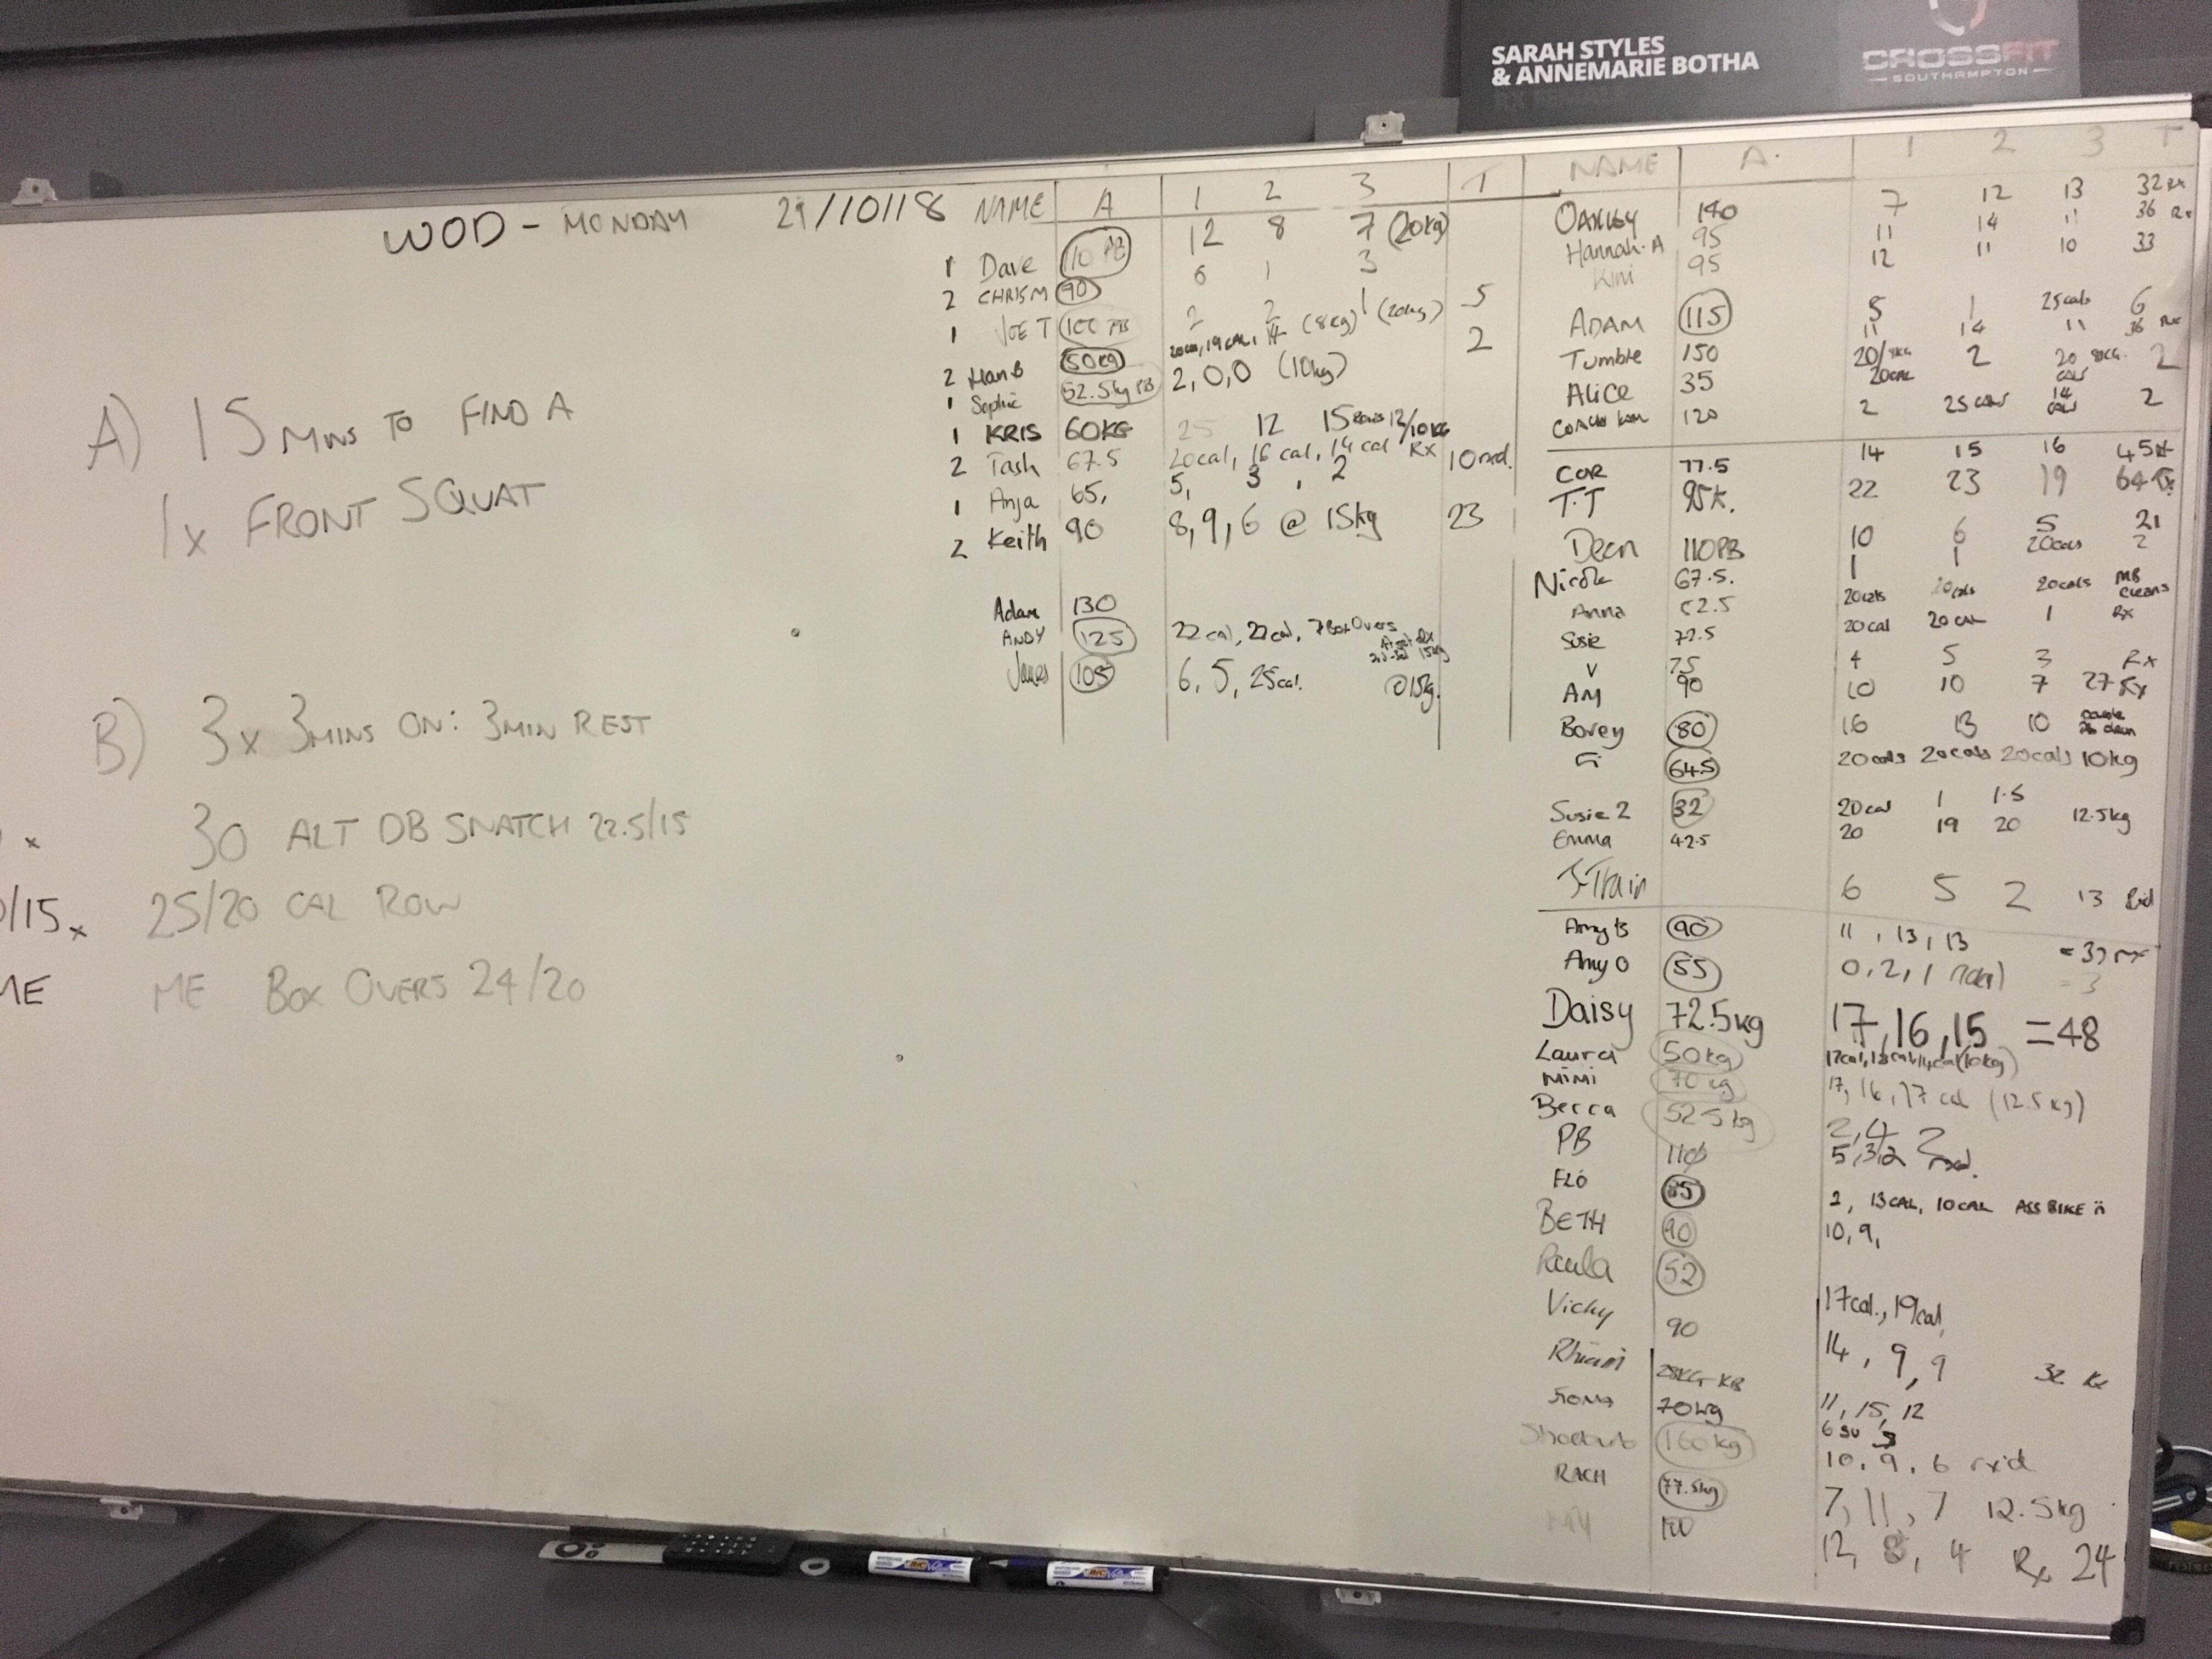 SARAH STYLES
& ANNEMARIE BOTHA
CROSSFIT
SOUTHAMPTON
WOD - MONDAY 29/10/18
A) 15 MINS TO FIND A
1x FRONT SQUAT
B) 3x 3MINS ON: 3MIN REST
30 ALT DB SNATCH 22.5/15
25/20 CAL ROW
ME BOX OVERS 24/20
x
/15x
ME
NAME A 1 2 3 T
1 Dave 110 PB 12 8 7 (20kg)
2 CHRISM 90 6 1 3
1 JOE T 100 PB 2 2 1 (20kg) 5
2 Han B 50kg 20cal, 19cal, 14 (8kg) 2
1 Sophie 52.5kg PB 2,0,0 (10kg)
1 KRIS 60KG 25 12 15 Rows 12/10KG
2 Tash 67.5 20cal, 16 cal, 14 cal Rx
1 Anja 65, 5, 3, 2 10 rxd.
2 Keith 90 8,9,6 @ 15kg 23
Adam 130
ANDY 125 22 cal, 22 cal, 7 Box Overs
James 105 6, 5, 25cal. @15kg.
NAME A. 1 2 3 T
OAKLEY 140 7 12 13 32 Rx
Hannah.A 95 11 14 11 36 Rx
Kim 95 12 11 10 33
ADAM 115 5 1 25cals 6
Tumble 150 11 14 11 36 Rx
Alice 35 20/8KG 20CAL 2 20 8KG. CALS 2
COACH 120 2 25 cals 14 cals 2
COR 77.5 14 15 16 45
T.T 95K. 22 23 19 64
Dean 110PB 10 6 5 21
Nicole 67.5. 1 1 20cals 2
Anna 52.5 20cals 20cals 20cals MB cleans
Susie 72.5 20cal 20 cal 1 Rx
V 75 4 5 3 Rx
AM 90 10 10 7 27 Rx
Bovey 80 16 13 10 double
Fi 64.5 20cals 20cals 20cals 10kg
Susie 2 32 20cal 1 1.5
Emma 42.5 20 19 20 12.5kg
J-Train 6 5 2 13 Rxd
Amy B 90 11, 13, 13 = 37 rx
Amy O 55 0,2,1 = 3
Daisy 72.5kg 17,16,15 =48
Laura 50kg 17cal,18cal,14cal(10kg)
MIMI 70kg 17, 16, 17 cal (12.5kg)
Becca 52.5kg 2,4, 2
PB 110 5,3,2 rxd.
FLO 85 2, 13CAL, 10CAL ASS BIKE
BETH 90 10, 9,
Paula 52
Vicky 90 17cal., 19cal,
Rhian 28KG KB 14, 9, 9 32 Rx
FIONA 70kg 11, 15, 12
160kg
RACH 77.5kg 10, 9, 6 rx'd
100 7, 11, 7 12.5kg
12, 8, 4 Rx 24